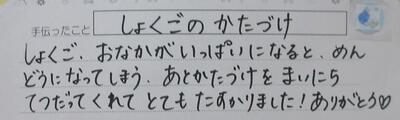 手伝ったこと しょくごの かたづけ
しょくご、おなかがいっぱいになると、めん
どうになってしまう、あとかたづけを まいにち
てつだって くれて とても たすかりました！ありがとう♡